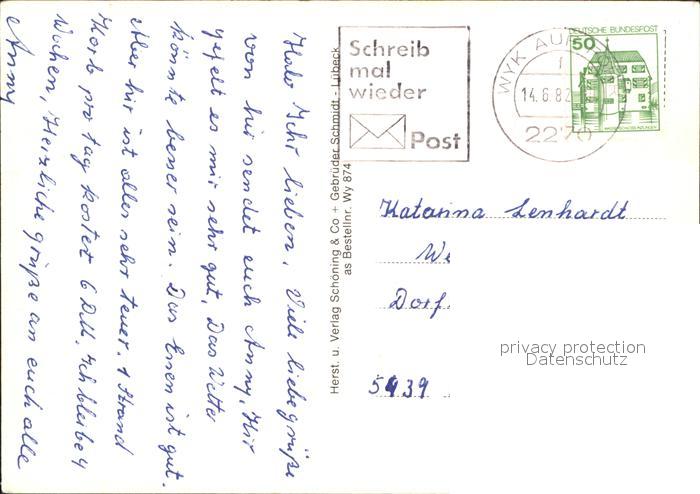 Halo Ihr lieben, Viele liebe grüße
von hir sendet euch Anny, Hir
gefelt es mir sehr gut, Das Wetter
könnte besser sein. Das Essen ist gut.
Aber hir ist alles sehr teuer. 1 Strand
Korb pro tag kostet 6 DM. Ich bleibe 4
Wochen, Herzliche grüße an euch alle
Anny
Herst. u. Verlag Schöning & Co + Gebrüder Schmidt - Lübeck
as Bestellnr. Wy 874
Schreib
mal
wieder
Post
WYK AUF
14.6.82
2270
DEUTSCHE BUNDESPOST
50
WASSERSCHLOSS INZLINGEN
Katarina Lenhardt
We
Dorf.
5439
privacy protection
Datenschutz